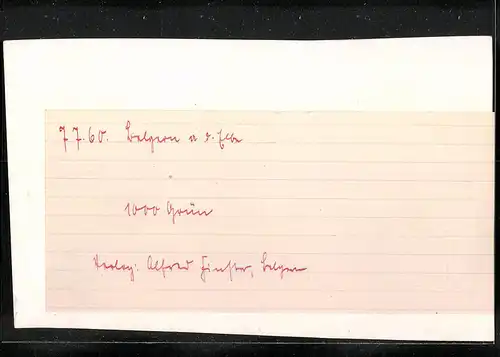 7.7.60. Belgern a d. Elbe
1000 Grün
Verlag: Alfred Finster, Belgern